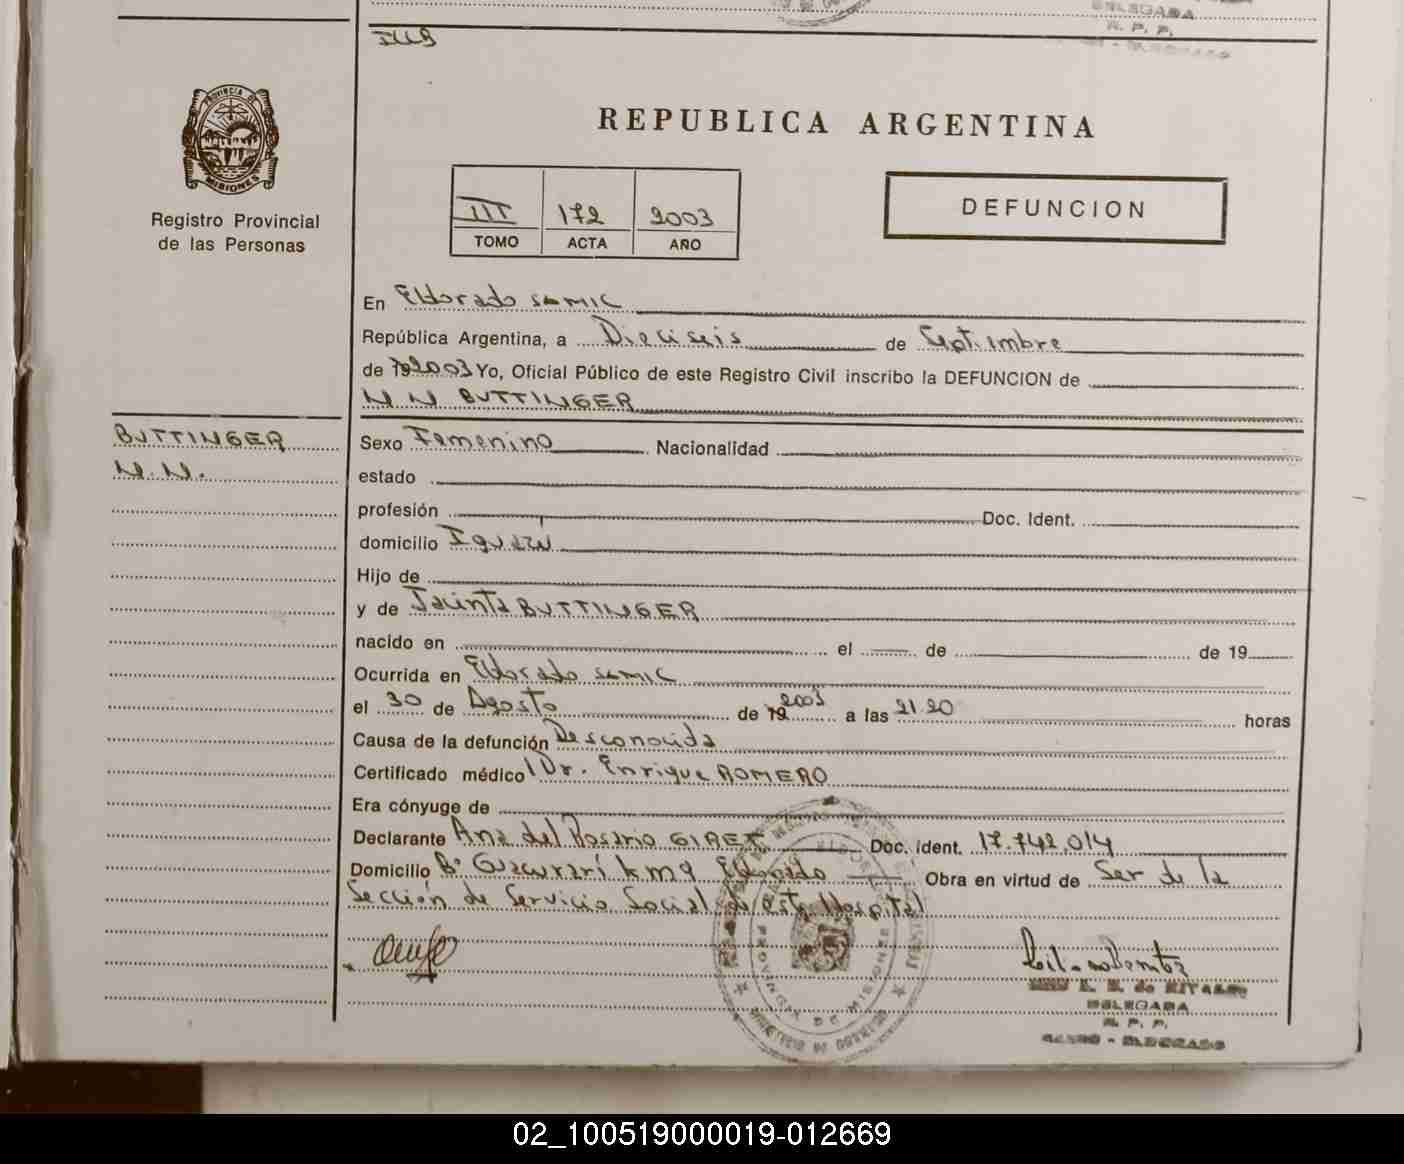 DELEGADA
R. P. P.
PROVINCIA DE
MISIONES
Registro Provincial
de las Personas
REPUBLICA ARGENTINA
III 172 2003
TOMO ACTA AÑO
DEFUNCION
En Eldorado SAMIC
República Argentina, a Dieciseis de Septiembre
de 192003 Yo, Oficial Público de este Registro Civil inscribo la DEFUNCION de
N N BUTTINGER
BUTTINGER
N. N.
Sexo Femenino Nacionalidad
estado
profesión Doc. Ident.
domicilio Iguazú
Hijo de
y de Jacinta BUTTINGER
nacido en el de de 19
Ocurrida en Eldorado SAMIC
el 30 de Agosto de 19 2003 a las 21 20 horas
Causa de la defunción Desconocida
Certificado médico Dr. Enrique ROMERO
Era cónyuge de
Declarante Ana del Rosario Doc. ident. 17.742.014
Domicilio Bº Guacurarí km 9 Eldorado Obra en virtud de Ser de la
Sección de Servicio Social de este Hospital
PROVINCIA DE MISIONES
DELEGADA
R. P. P.
ELDORADO
02_100519000019-012669